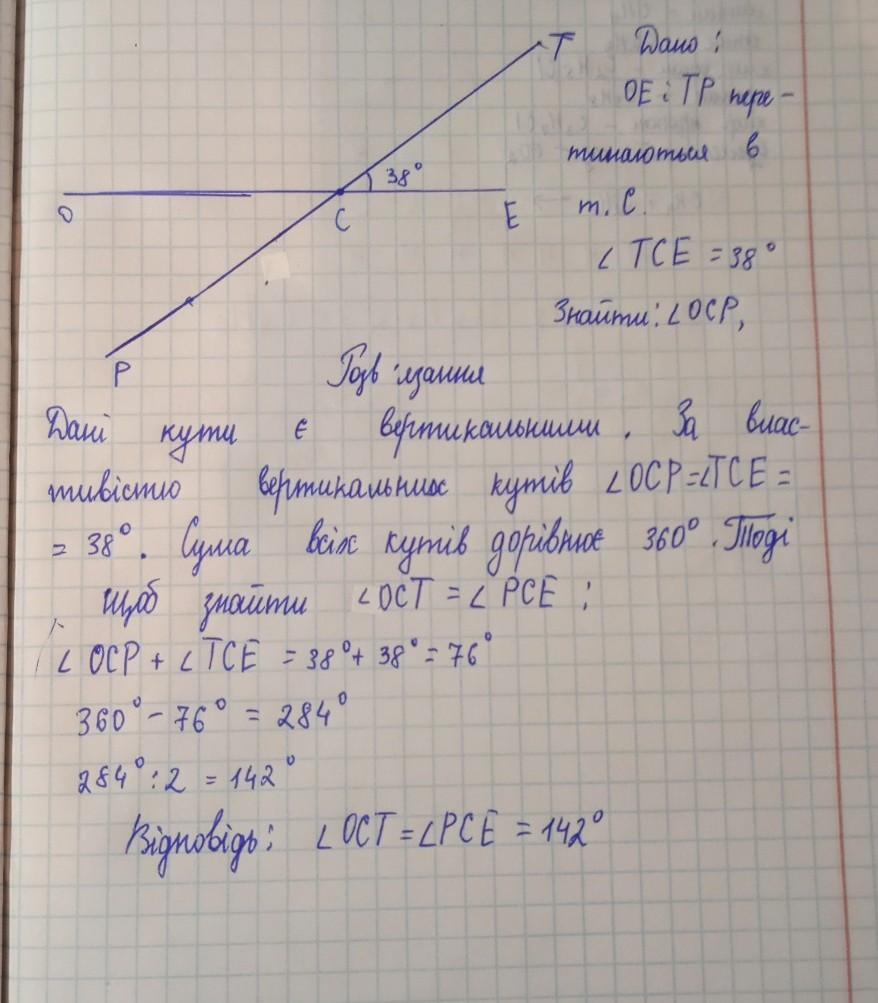 T
38°
O
C
E
P
Дано:
OE і TP пере-
тинаються в
т. C.
∠ TCE = 38°
Знайти: ∠OCP,
Розв'язання
Дані кути є вертикальними. За влас-
тивістю вертикальних кутів ∠OCP=∠TCE =
= 38°. Сума всіх кутів дорівнює 360°. Тоді
щоб знайти ∠OCT = ∠ PCE ;
∠ OCP + ∠ TCE = 38°+ 38° = 76°
360° - 76° = 284°
284° : 2 = 142°
Відповідь: ∠OCT = ∠PCE = 142°